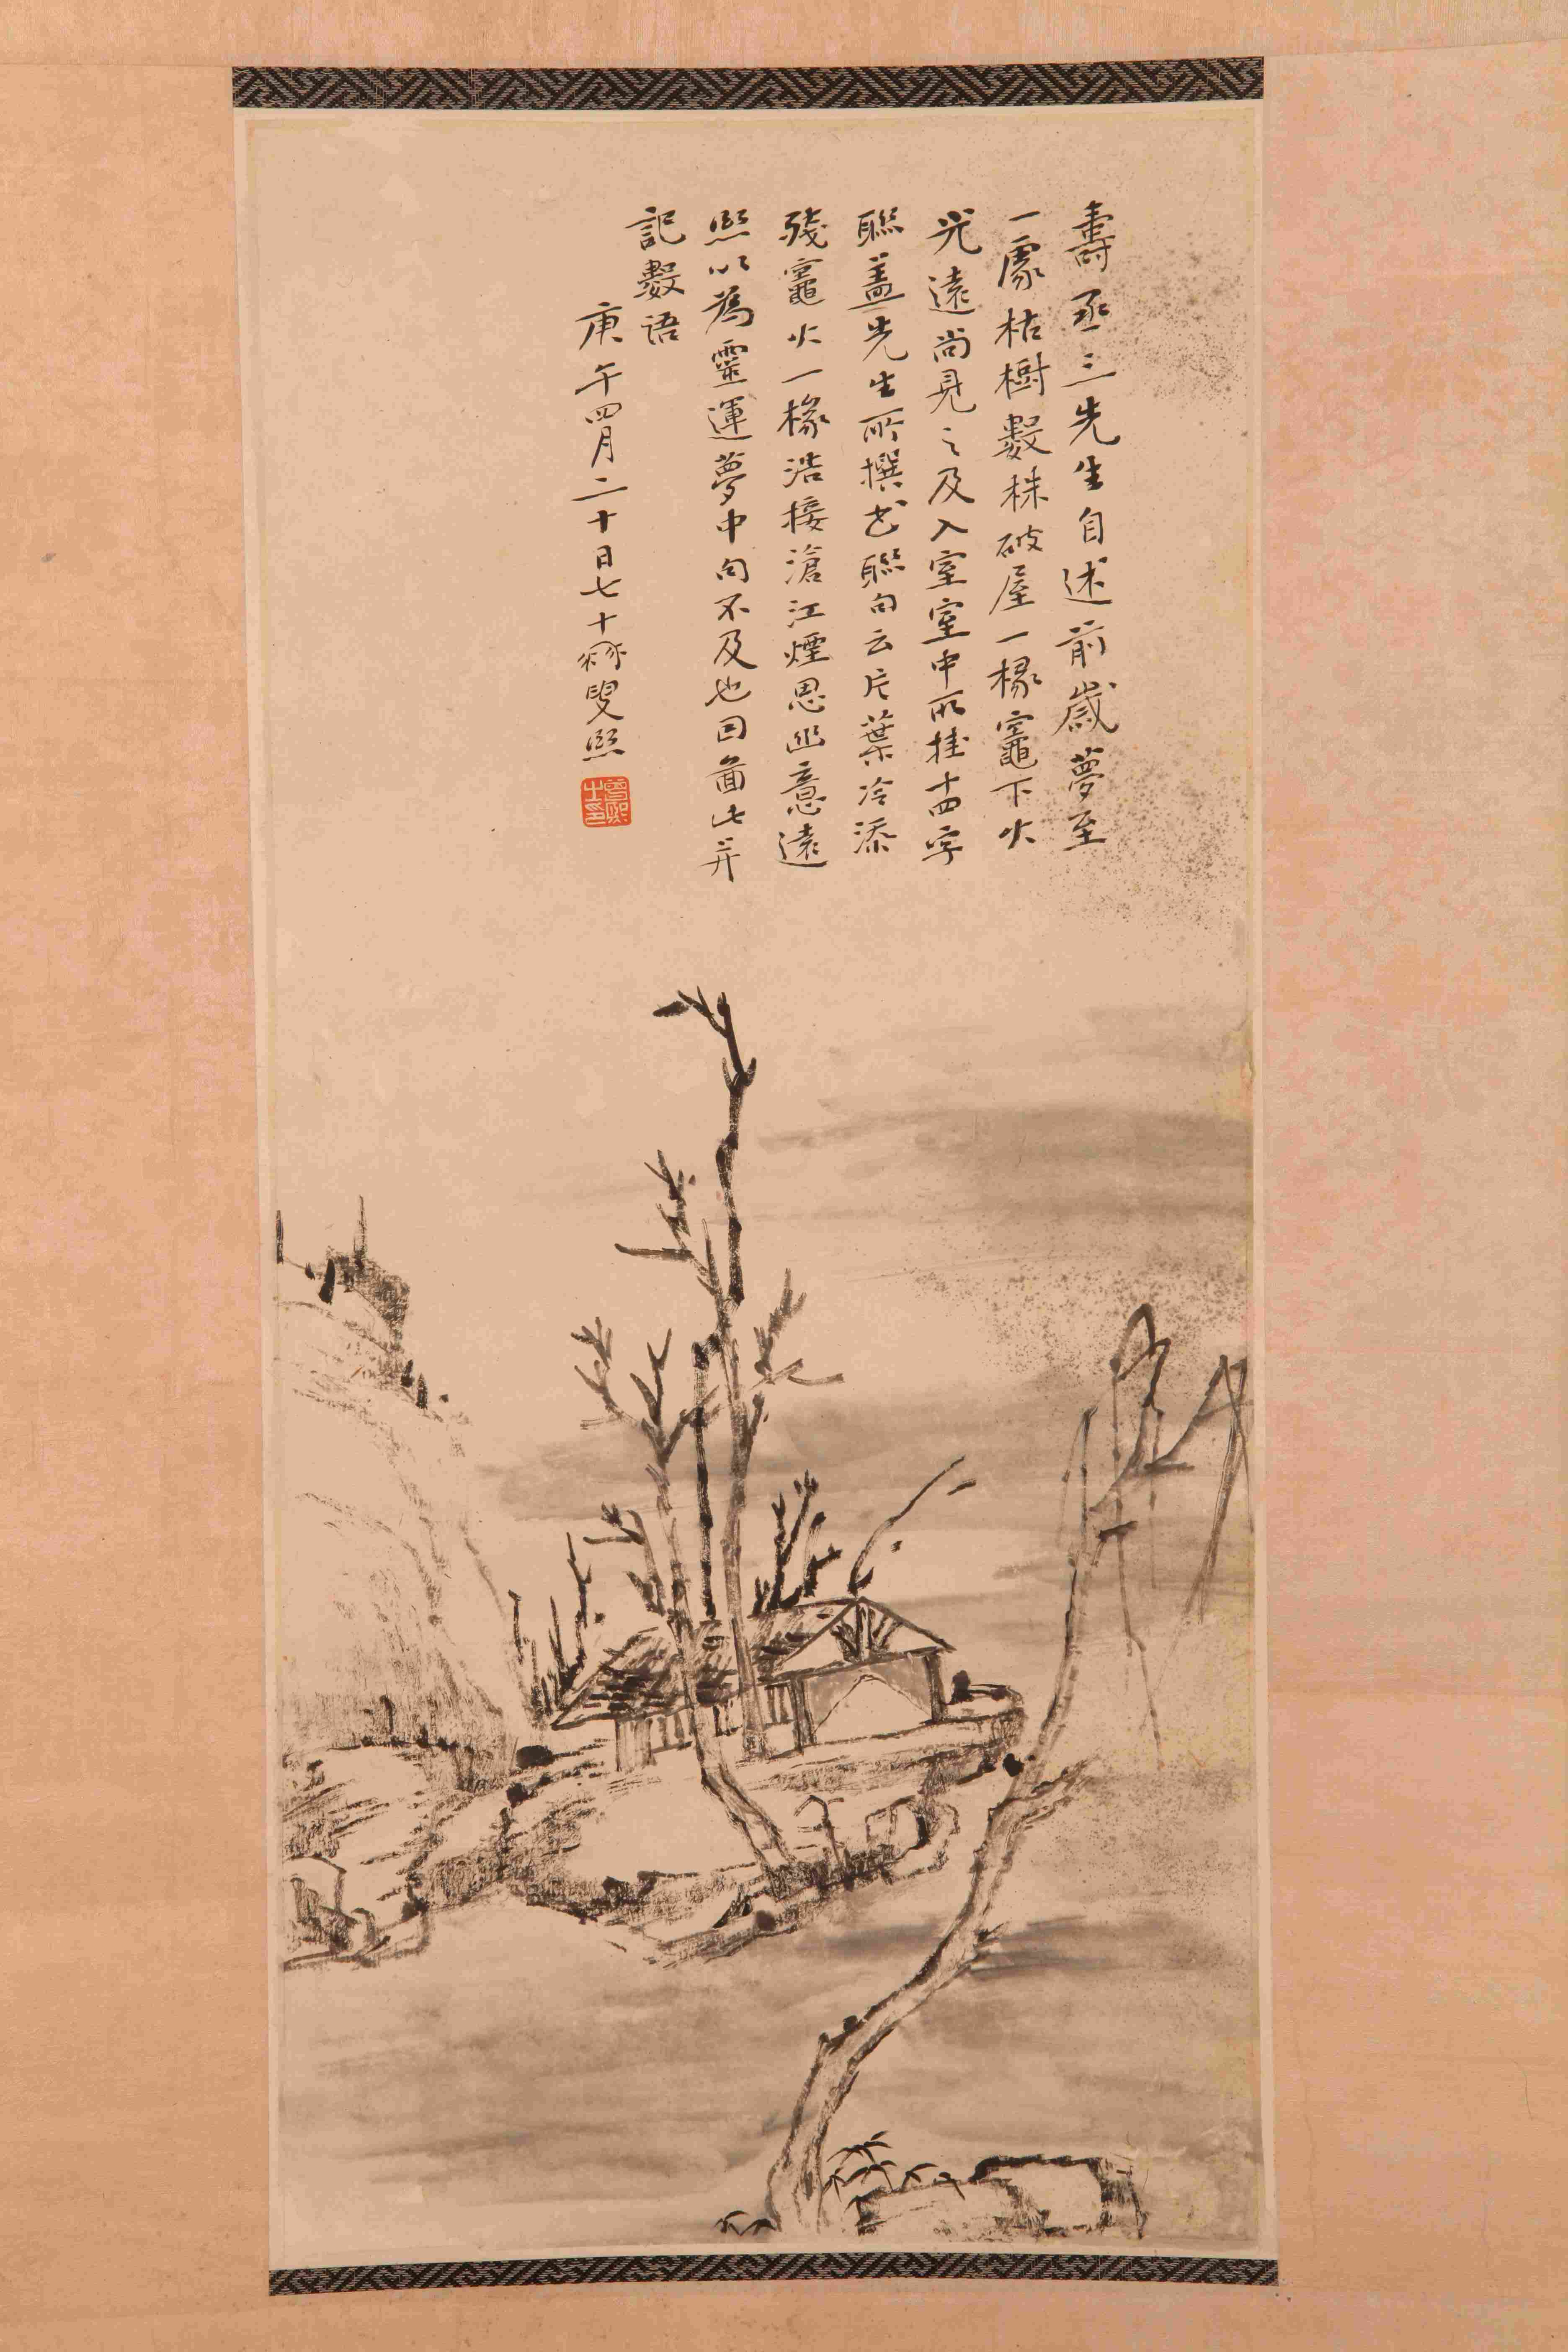 壽丞三先生自述前歲夢至
一處枯樹數株破屋一椽竈下火
光遠尚見之及入室室中所挂十四字
聯蓋先生所撰也聯句云片葉冷添
殘竈火一椽浩接滄江煙思幽意遠
熙以為靈運夢中句不及也因畫此并
記數语
庚午四月二十日七十叟熙
曾熙之印